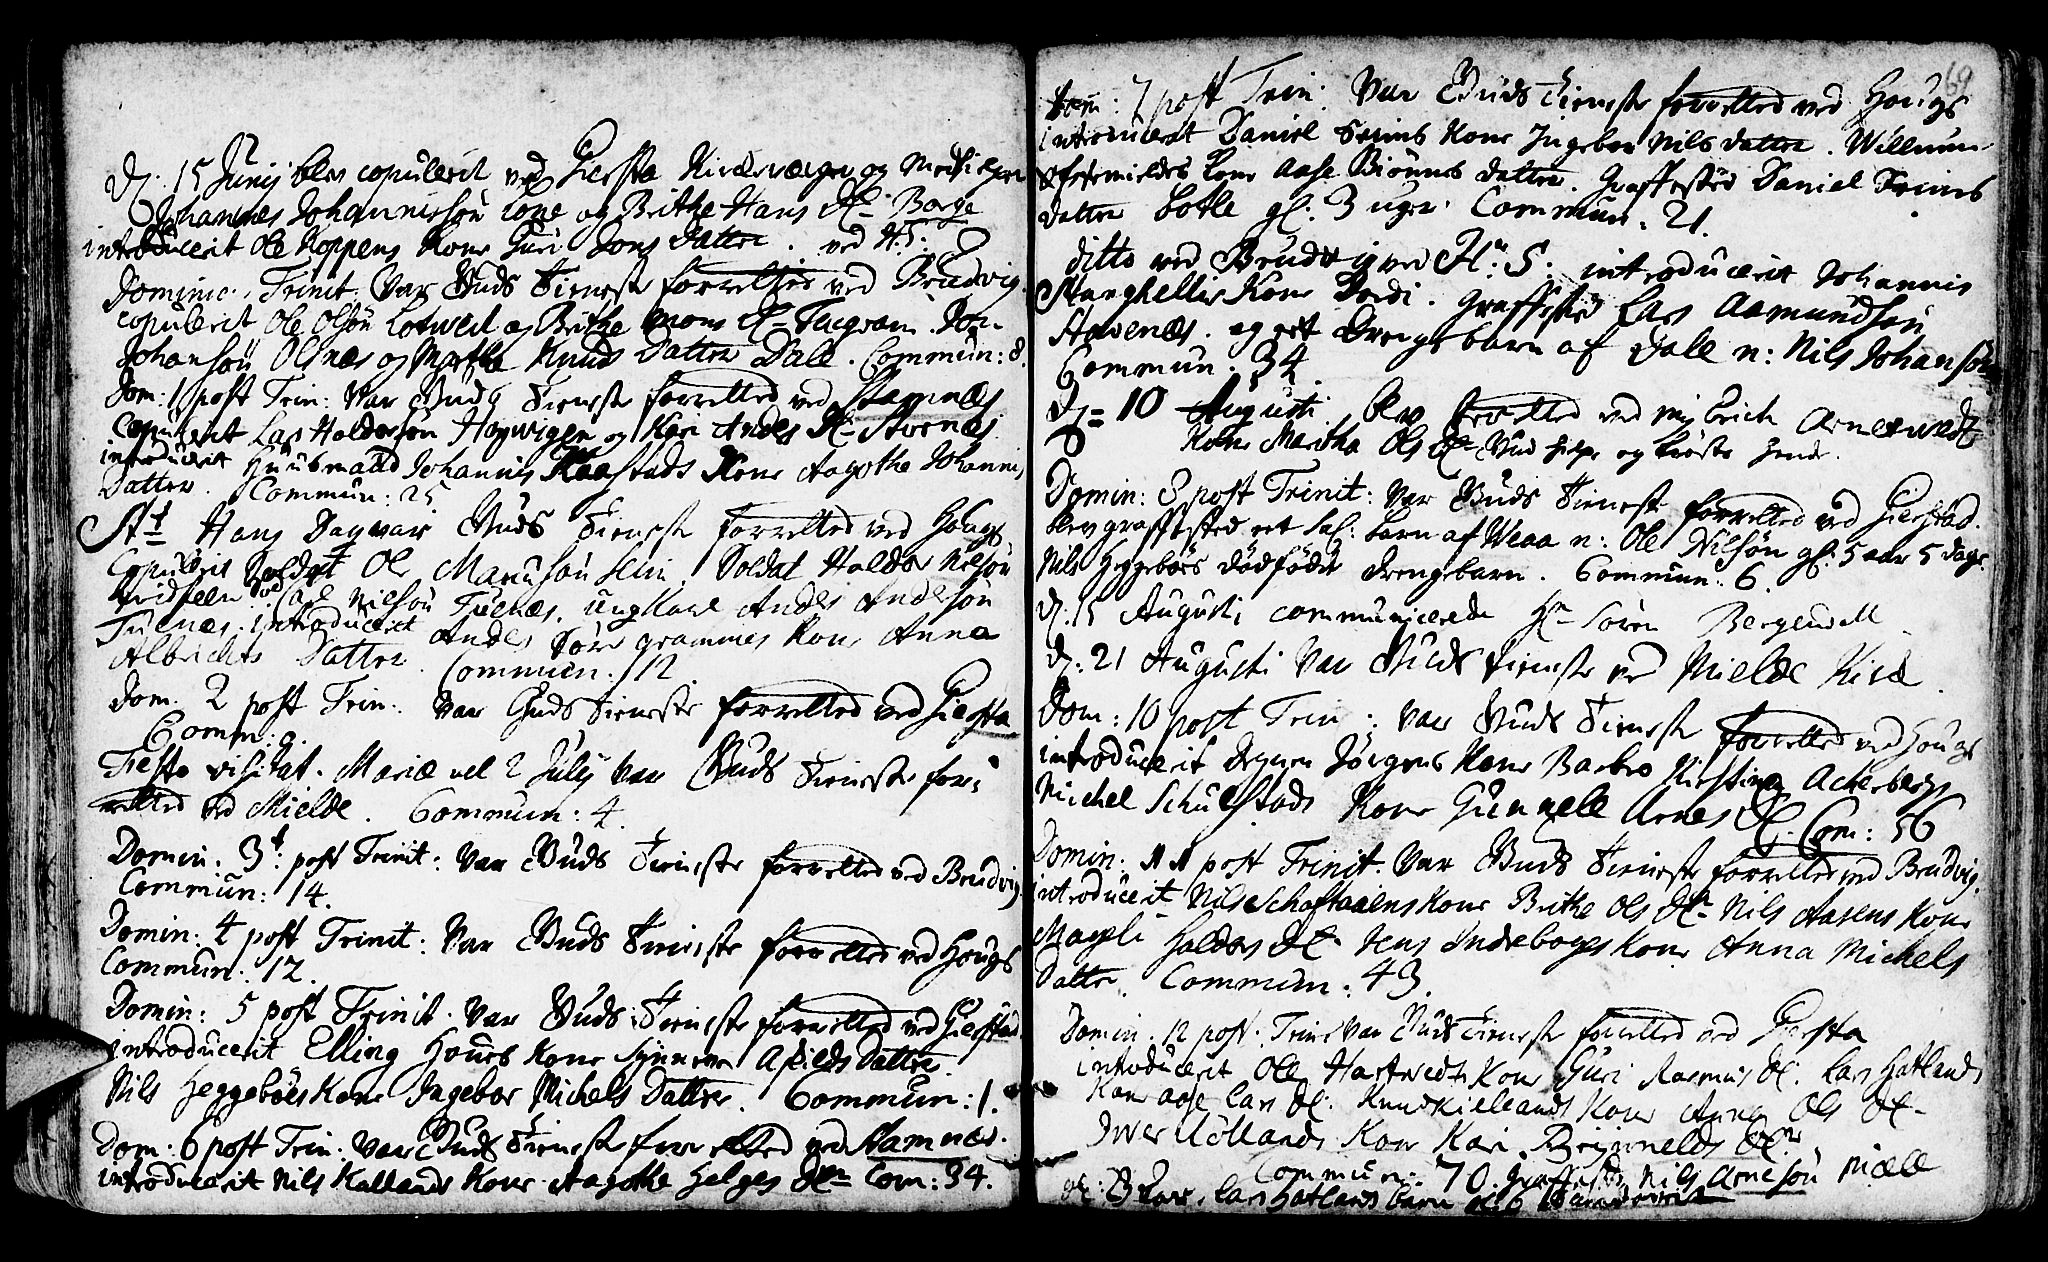 D. 15 Junij blev copulerit ved Giersta Kirche
Johannes Johannessøn Lone og Brithe Hans Dr Borge
introducerit Ole Koppens Kone Guri Jons Datter. ved H: S:
Dominic. Trinit. var Guds Tieneste forrettet ved Brudvig.
copulerit Ole Olsøn Lotwedt og Brithe Mons Dr Jon
Johansøn Olsnæs og Martha Knuds Datter Dale. Commun: 8.
Dom: 1 post Trin: var Guds Tieneste forretted ved Stamnæs
Copulerit Lars Haldorsøn og Kari Anders Dr
introducerit Huusmand Johannis Kone Aagothe Johannis
Datter. Commun: 25
St Hans Dag var Guds Tieneste forretted ved Hougs
Copulerit Soldat Ole Soldat Haldor Nilsøn
Nielsøn Tuenæs. ung Karl Anders Andersøn
Tuenæs. introducerit Anders Kone Anna
Albrichts Datter. Commun. 12
Dom. 2 post Trin: var Guds Tieneste forretted ved Giersta
Comm: 9.
Festo visitat. Mariæ vel 2 July var Guds Tieneste for:
retted ved Mielde. Commun: 4.
Domin. 3t: post Trinit: var Guds Tieneste forretted ved Brudvig
Commun: 14.
Domin: 4 post Trinit: var Guds Tieneste forretted ved Hougs
Commun: 12.
Domin: 5 post Trinit. var Guds Tieneste forretted ved Gierstad
introducerit Elling Houes Kone Synneve Datter.
Nils Heggebøes Kone Ingebor Michels Datter. Commun: 1.
Dom: 6 post Trin: var Guds Tieneste forretted ved Stamnæs.
introducerit Nils Kallands Kone Aagothe Helges Dr Com: 34.
69
Dom: 7 post Trin: var Guds Tieneste forretted ved Hougs
introducerit Daniel Kone Ingebor Nils datter. Willum
Kone Aase Biønns datter. Graffested Daniel
datter gl: 3 uger. Commun: 21.
ditto ved Brudvig ved Hr: S: introducerit Johannis
Stanghelles Kone Graffested Lars Aamundsøn
Stavenæs. og eet Drengebarn af Dale n: Nils Johansøn
Commun. 34.
D: 10 Augusti blev ved mig Erich
Kone Martha Ols Dr Gud hielpe og trøste hende.
Domin: 8 post Trinit: var Guds Tieneste forretted ved Gierstad.
blev graffested eet barn af n: Ole Nilsøn gl: 5 aar 5 dage
Nils Heggebøes dødfødde drengebarn. Commun: 6.
D: 15 Augusti communicerede Hr Søren Bergendal
D: 21 Augusti var Guds tieneste ved Mielde Kirke
Dom: 10 post Trin: var Guds Tieneste forretted ved Hougs
introducerit Degnen Jørgens Kone Barbro Kirstina
Michel Schulstads Kone Gunnele Arnes Dr. Com: 56
Domin: 11 post Trinit. var Guds Tieneste forretted ved Brudvig.
introducerit Nils Kone Brithe Ols Dr Nils Aasens Kone
Mageli Haldors Dr. Jens Indreboges Kone Anna Michels
Datter. Commun: 43.
Domin. 12 post. Trin: var Guds Tieneste forretted ved Giersta
introducerit Ole Hartvedts Kone Guri Rasmus Dr. Lars Hatlands
Kone Aase Lars Dr. Knud Kiellands Kone Anna Ols Dr
Iver Kone Kari Dr
Commun: 70. Graffested Nils Arnesøn
gl: Lars Hatlands barn